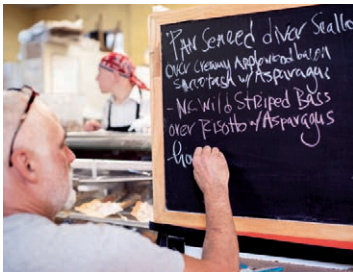 "Pan Seared diver Scallo
over Creamy Applewood bacon
succotash w/ Asparagus
- NC Wild Striped Bass
over Risotto w/ Asparagus
-